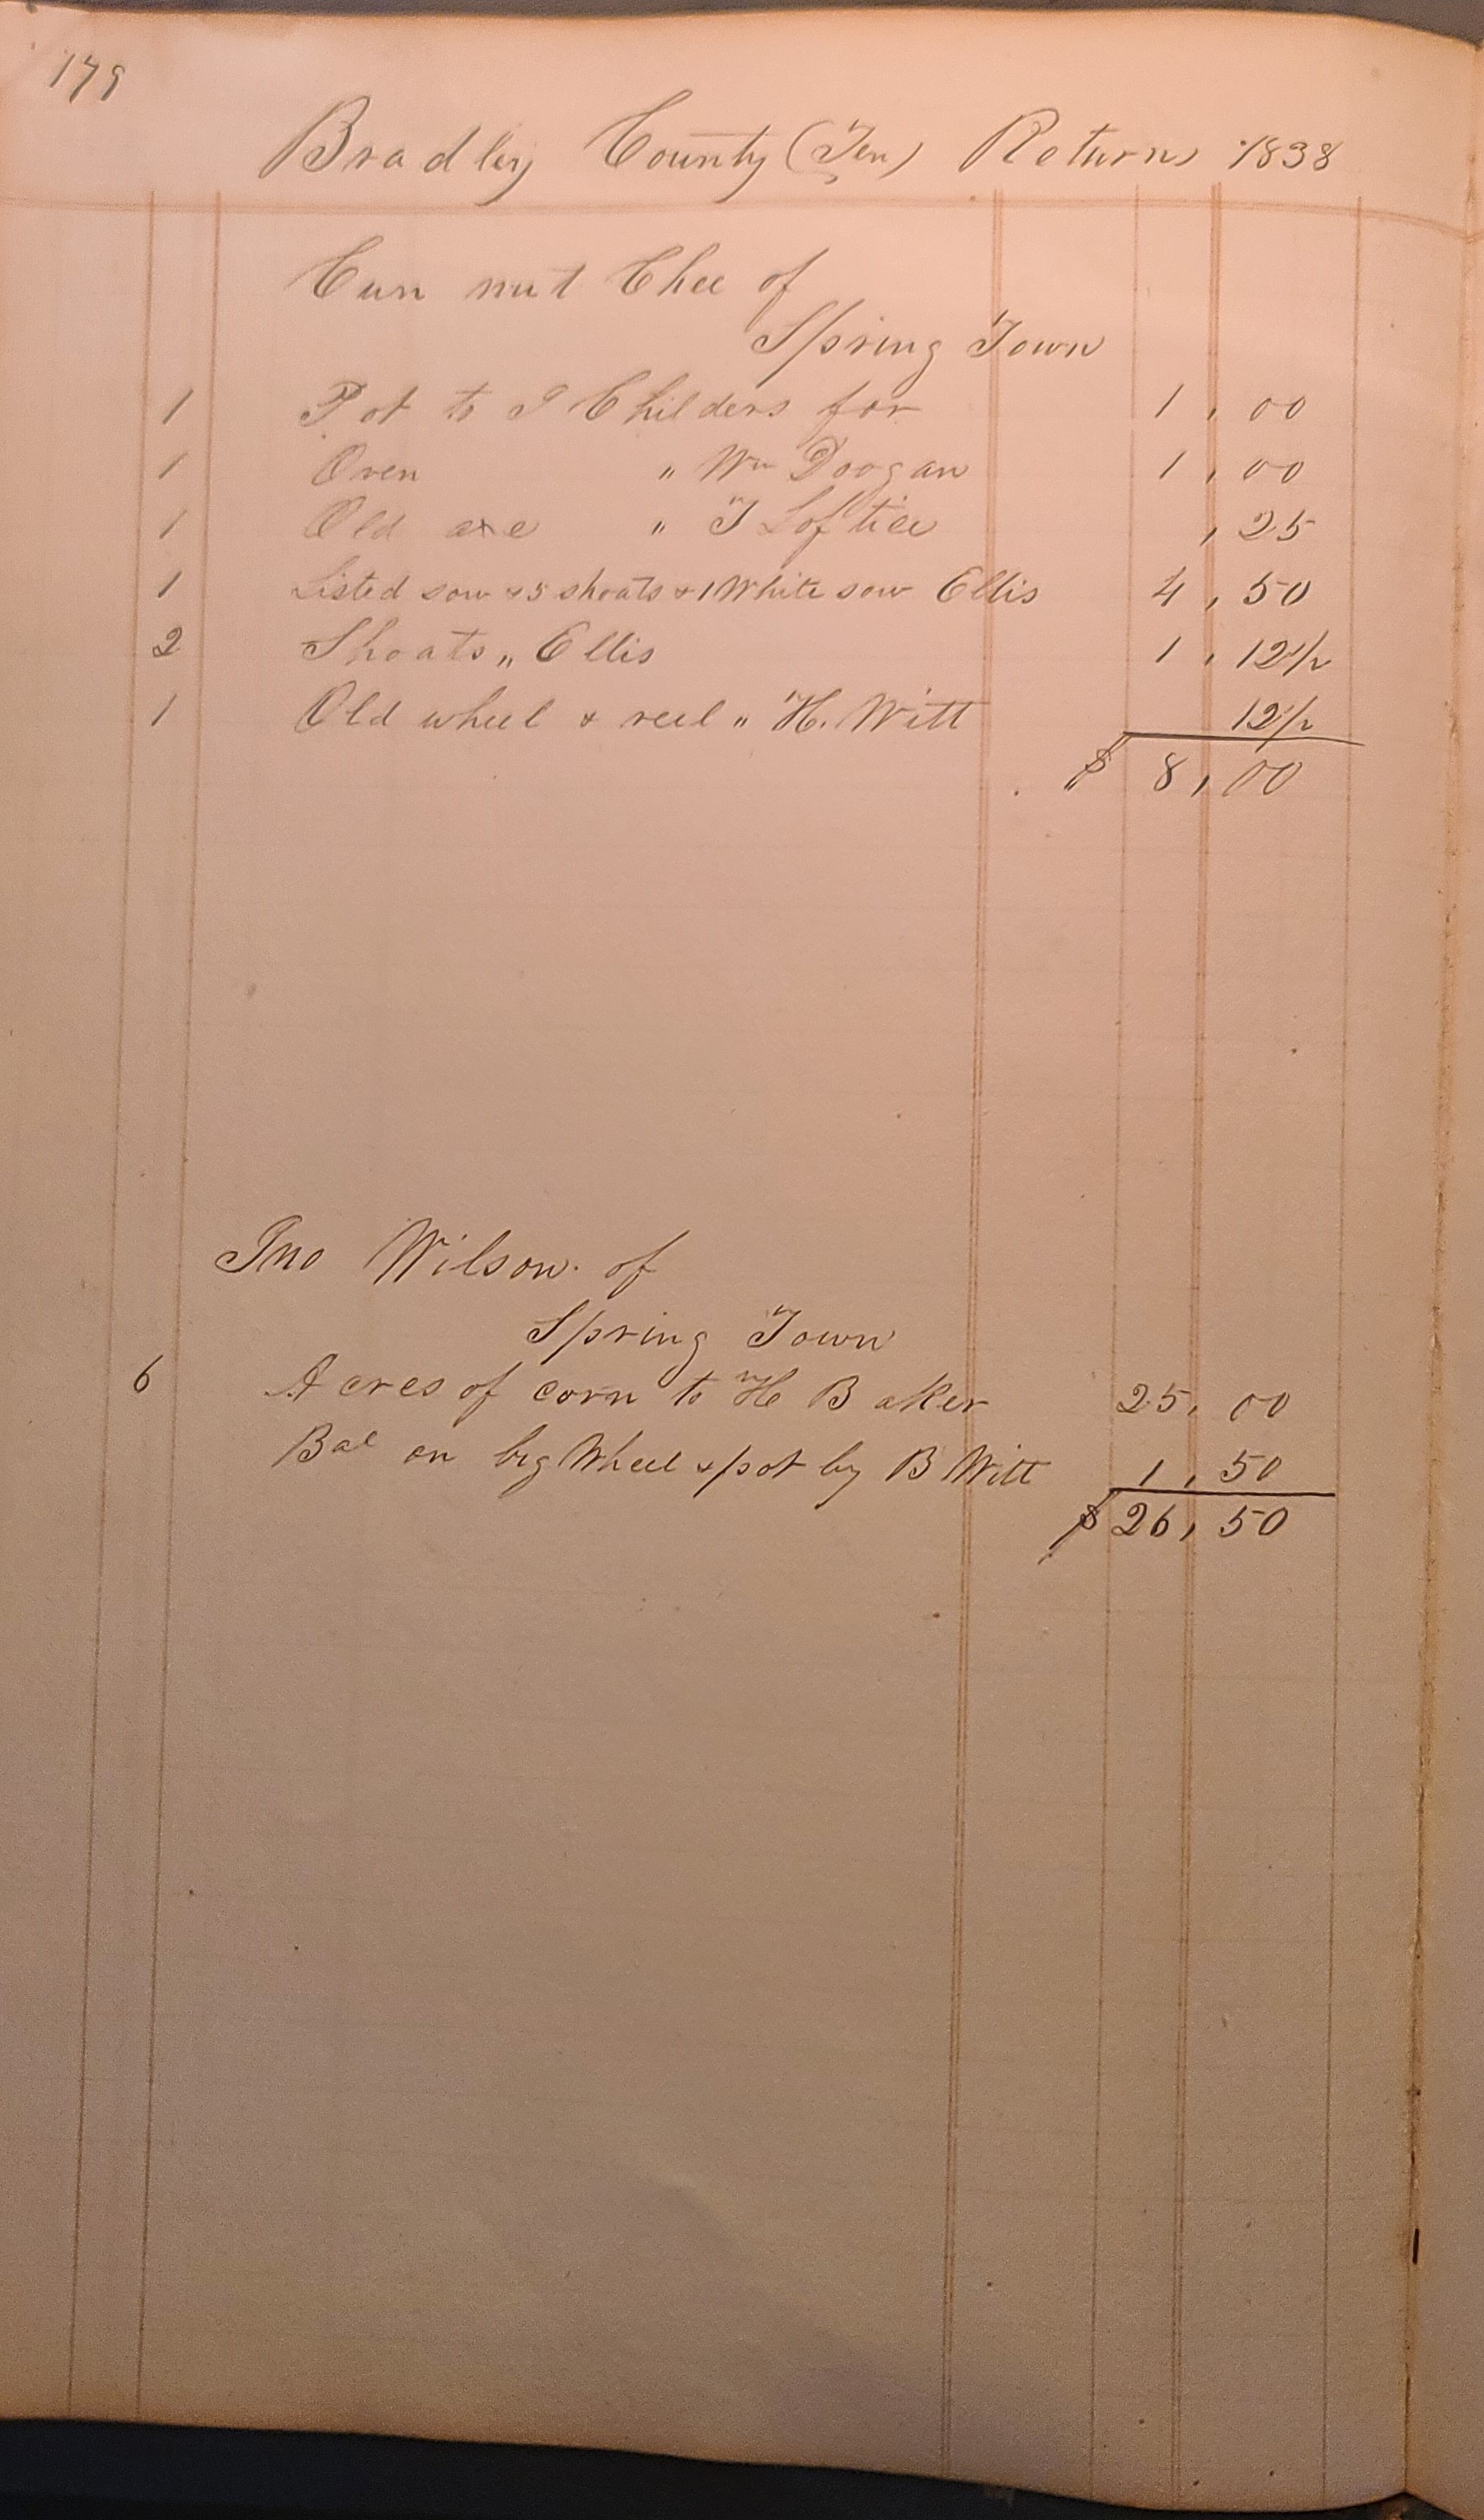 179
Bradley County (Ten) Return 1838
Cun nut Chee of
Spring Town
1 Pot to J Childers for 1,00
1 Oven " Wm Doogan 1,00
1 Old axe " T Loftice ,25
1 Listed sow & 5 shoats & 1 White sow Ellis 4,50
2 Shoats " Ellis 1,12 1/2
1 Old wheel & reel " H. Witt 12 1/2
$ 8,00
Jno Wilson of
Spring Town
6 Acres of corn to H Baker 25,00
Bal on big Wheel & pot by B Witt 1,50
$ 26,50